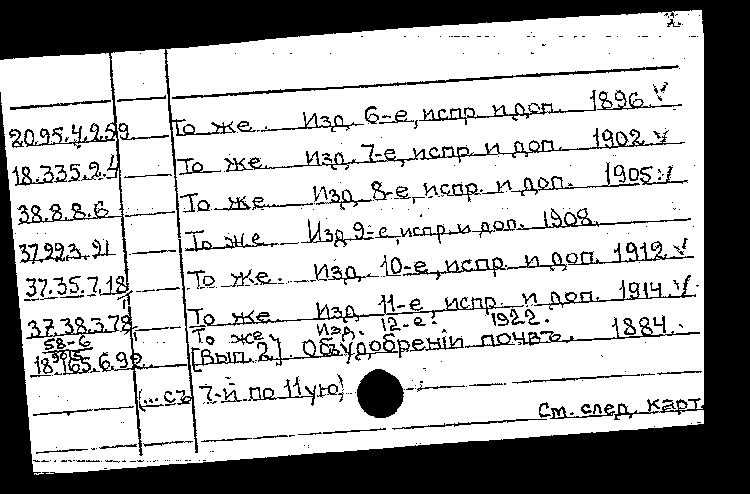 2.
20.95.4.259 То же. Изд. 6-е, испр. и доп. 1896.
18.335.2.4 То же. Изд. 7-е, испр. и доп. 1902.
38.8.8.6 То же. Изд. 8-е, испр. и доп. 1905.
37.22.3.21 То же. Изд. 9-е, испр. и доп. 1908.
37.35.7.18 То же. Изд. 10-е, испр. и доп. 1912.
37.38.3.78 То же. Изд. 11-е, испр. и доп. 1914.
58-6 То же. Изд. 12-е. 1922.
18.165.6.92 [Вып. 2.] Объ удобренiи почвъ. 1884.
(... съ 7-й по 11ую)
См. след. карт.